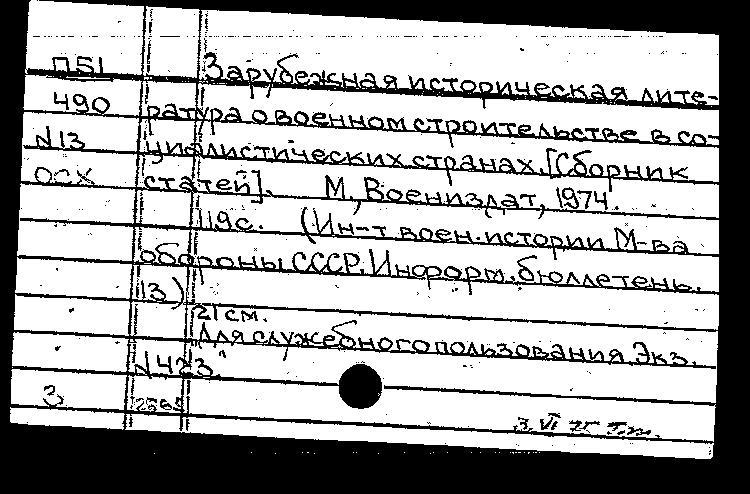 П51 Зарубежная историческая лите-
490 ратура о военном строительстве в со-
N13 циалистических странах. [Сборник
ОСХ статей]. М, Воениздат, 1974.
119с. (Ин-т воен. истории М-ва
обороны СССР. Информ. бюллетень.
13)
21 см.
Для служебного пользования. Экз.
N423."
3
3. VI 75